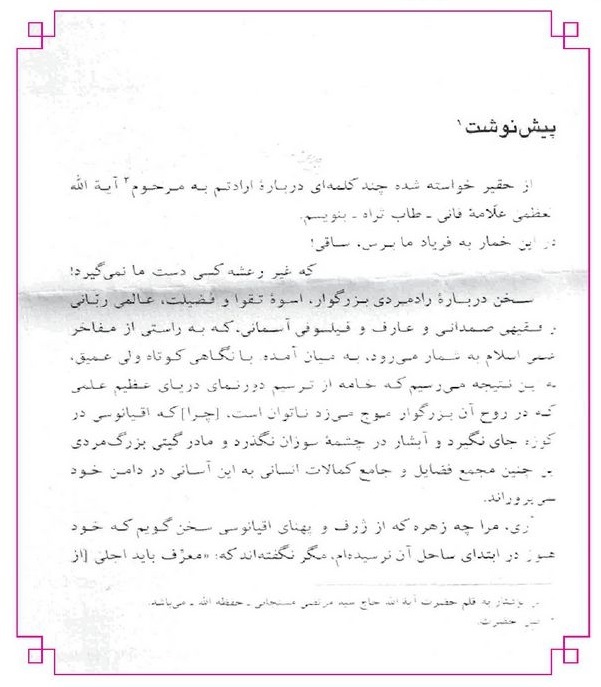 پیش‌نوشت۱
از حقیر خواسته شده چند کلمه‌ای دربارهٔ ارادتم به مرحوم۲ آیة الله
لعظمی علّامهٔ فانی ـ طاب ثراه ـ بنویسم.
در این خمار به فریاد ما برس، ساقی!
که غیر رعشه کسی دست ما نمی‌گیرد!
سخن دربارهٔ رادمردی بزرگوار، اسوهٔ تقوا و فضیلت، عالمی ربّانی
و فقیهی صمدانی و عارف و فیلسوفی آسمانی، که به راستی از مفاخر
اسلام به شمار می‌رود، به میان آمده. با نگاهی کوتاه ولی عمیق،
به این نتیجه می‌رسیم که خامه از ترسیم دورنمای دریای عظیم علمی
که در روح آن بزرگوار موج می‌زد ناتوان است، [چرا] که اقیانوسی در
کوزه جای نگیرد و آبشار در چشمهٔ سوزان نگذرد و مادر گیتی بزرگ‌مردی
این چنین مجمع فضایل و جامع کمالات انسانی به این آسانی در دامن خود
نمی‌پروراند.
آری، مرا چه زهره که از ژرف و پهنای اقیانوسی سخن گویم که خود
هنوز در ابتدای ساحل آن نرسیده‌ام، مگر نگفته‌اند که: «معرِّف باید اجلیٰ [از
نوشتار به قلم حضرت آیة الله حاج سید مرتضی مستجابی ـ حفظه الله ـ می‌باشد.
حضرت.